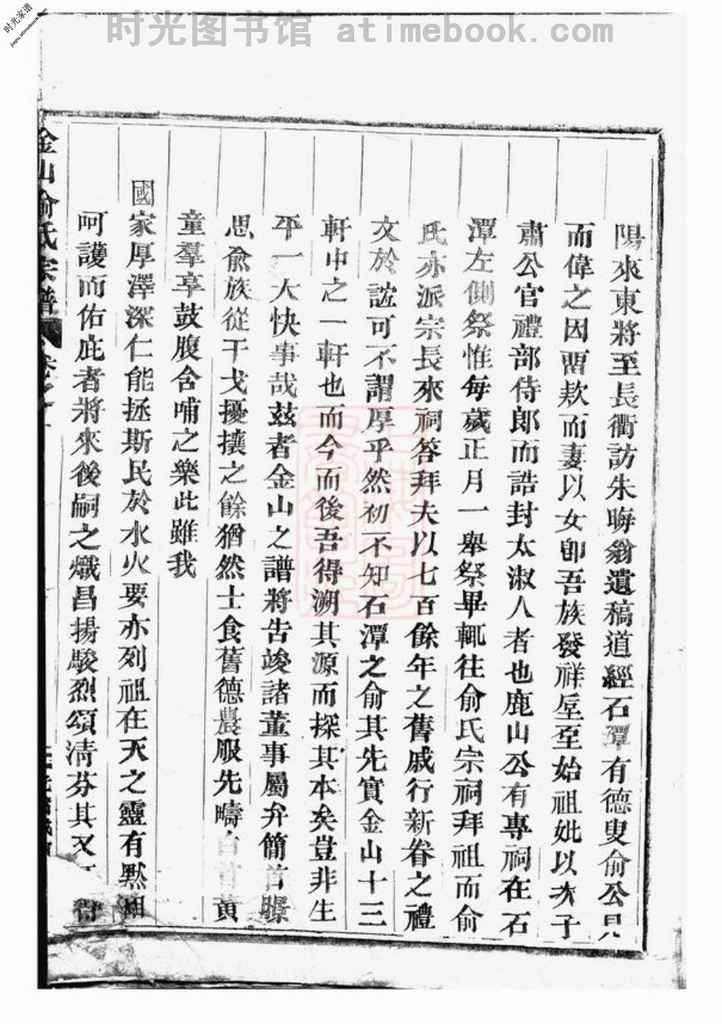 时光图书馆 atimebook.com
时光家谱
陽來東將至長衢訪朱晦翁遺稿道經石潭有德叟俞公見
而偉之因畱欵而妻以女卽吾族發祥座至始祖妣以次子
肅公官禮部侍郎而誥封太淑人者也鹿山公有專祠在石
潭左側祭惟每歲正月一舉祭畢輒往俞氏宗祠拜祖而俞
氏亦派宗長來祠答拜夫以七百餘年之舊戚行新眷之禮
文於誼可不謂厚乎然初不知石潭之俞其先實金山十三
軒中之一軒也而今而後吾得溯其源而探其本矣豈非生
平一大快事哉茲者金山之譜將吿竣諸董事屬弁簡首
思俞族從干戈擾攘之餘猶然士食舊德農服先疇白首黃
童羣享鼓腹含哺之樂此雖我
國家厚澤深仁能拯斯民於水火要亦列祖在天之靈有默相
呵護而佑庇者將來後嗣之熾昌揚駿烈頌清芬其又
金山俞氏宗譜 卷之